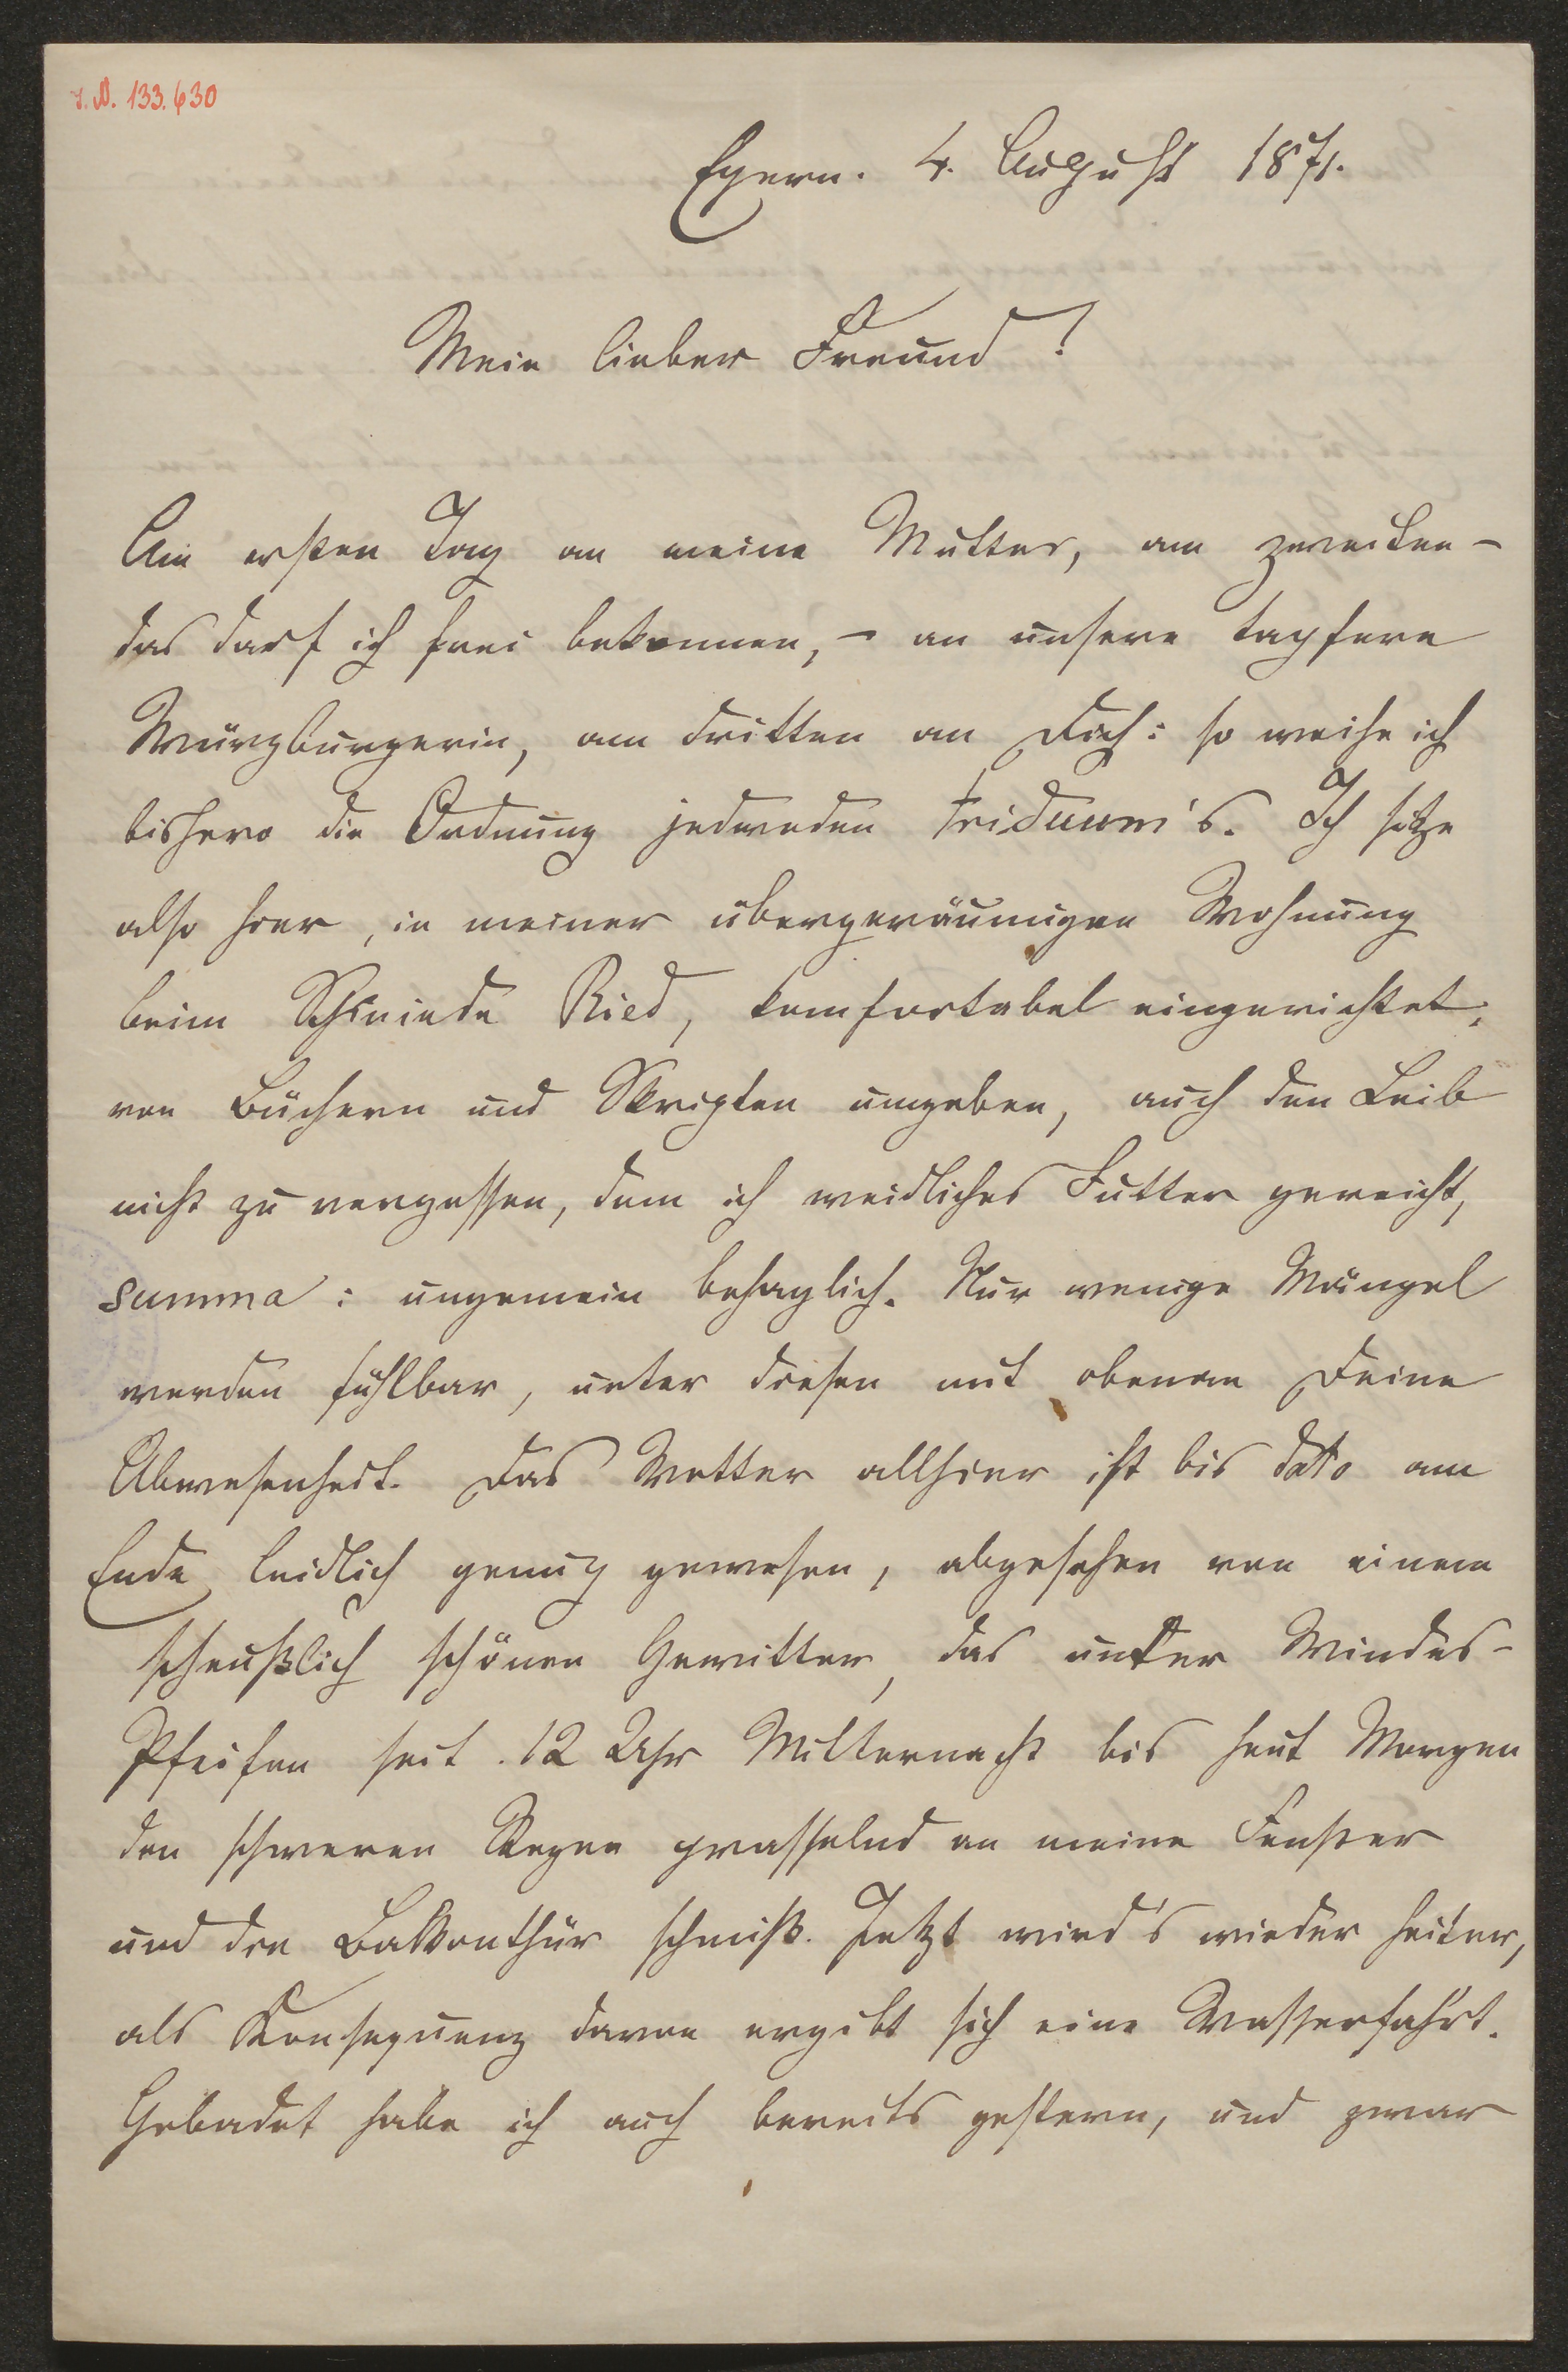 I. N. 133.630
Egern. 4. August 1871.
Mein lieber Freund!
Am ersten Tag an meine Mutter, am zweiten –
das darf ich frei bekennen, – an unsere tapfere
Würzburgerin, am dritten an Dich: so weihe ich
bishero die Ordnung jedweden triduum's. Ich sitze
also hier, in meiner übergeräumigen Wohnung
beim Schmiede Ried, komfortabel eingerichtet,
von Büchern und Skripten umgeben, auch den Leib
nicht zu vergessen, dem ich weidliches Futter gereicht,
summa: ungemein behaglich. Nur wenige Mängel
werden fühlbar, unter diesen mit obenan Deine
Abwesenheit. Das Wetter allhier ist bis dato am
Ende leidlich genug gewesen, abgesehen von einem
scheußlich schönen Gewitter, das unter Windes-
Pfeifen seit 12 Uhr Mitternacht bis heut Morgen
den schweren Regen prasselnd an meine Fenster
und die Balkonthür schmiß. Jetzt wird's wieder heiter,
als Konsequenz davon ergibt sich eine Wasserfahrt.
Gebadet habe ich auch bereits gestern, und zwar